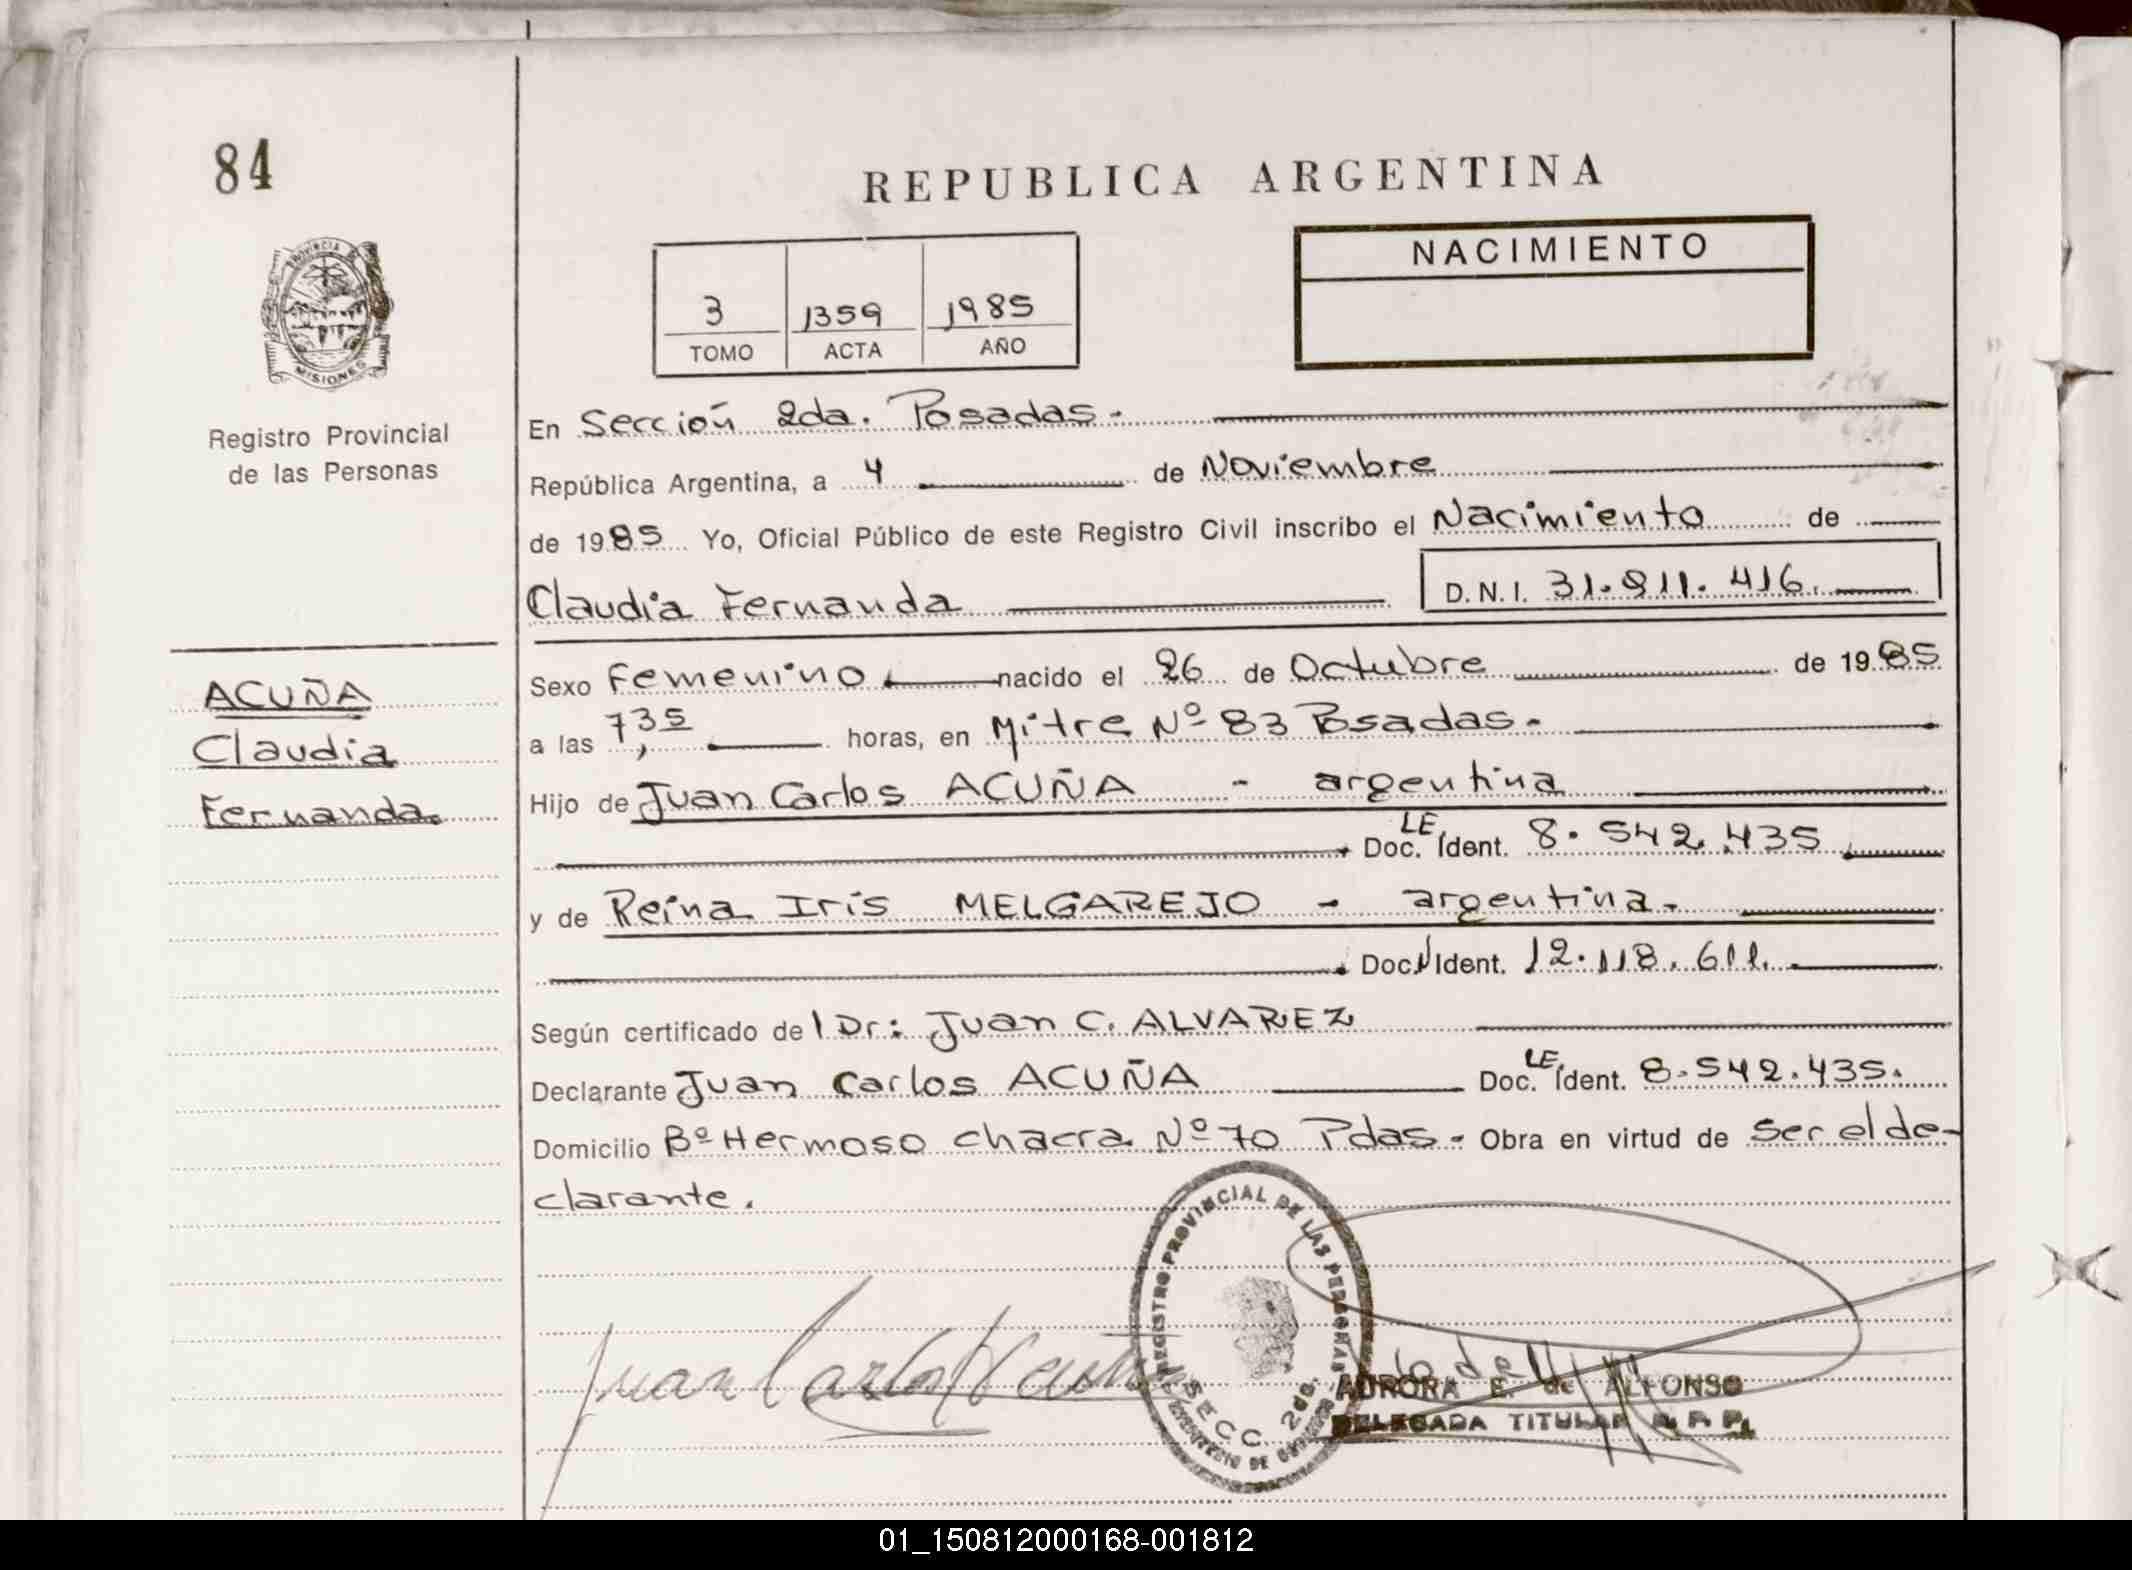 84
REPUBLICA ARGENTINA
PROVINCIA DE
MISIONES
Registro Provincial
de las Personas
3 1359 1985
TOMO ACTA AÑO
NACIMIENTO
En Sección 2da. Posadas.-
República Argentina, a 4 de Noviembre
de 1985 Yo, Oficial Público de este Registro Civil inscribo el Nacimiento de
Claudia Fernanda D.N.I. 31.811.416.
ACUÑA
Claudia
Fernanda.
Sexo Femenino nacido el 26 de Octubre de 1985
a las 7,35 horas, en Mitre Nº 83 Posadas.-
Hijo de Juan Carlos ACUÑA - argentina
LE. Doc. Ident. 8.542.435
y de Reina Iris MELGAREJO - argentina.-
Doc. Ident. 12.118.611.
Según certificado de l Dr: Juan C. ALVAREZ
Declarante Juan Carlos ACUÑA LE. Doc. Ident. 8.542.435.
Domicilio Bº Hermoso chacra Nº 70 Pdas.- Obra en virtud de ser el de-
clarante.
REGISTRO PROVINCIAL DE LAS PERSONAS
SECC. 2da.
Juan Carlos Acuña
AURORA E. de ALFONSO
DELEGADA TITULAR R. P. P.
01_150812000168-001812